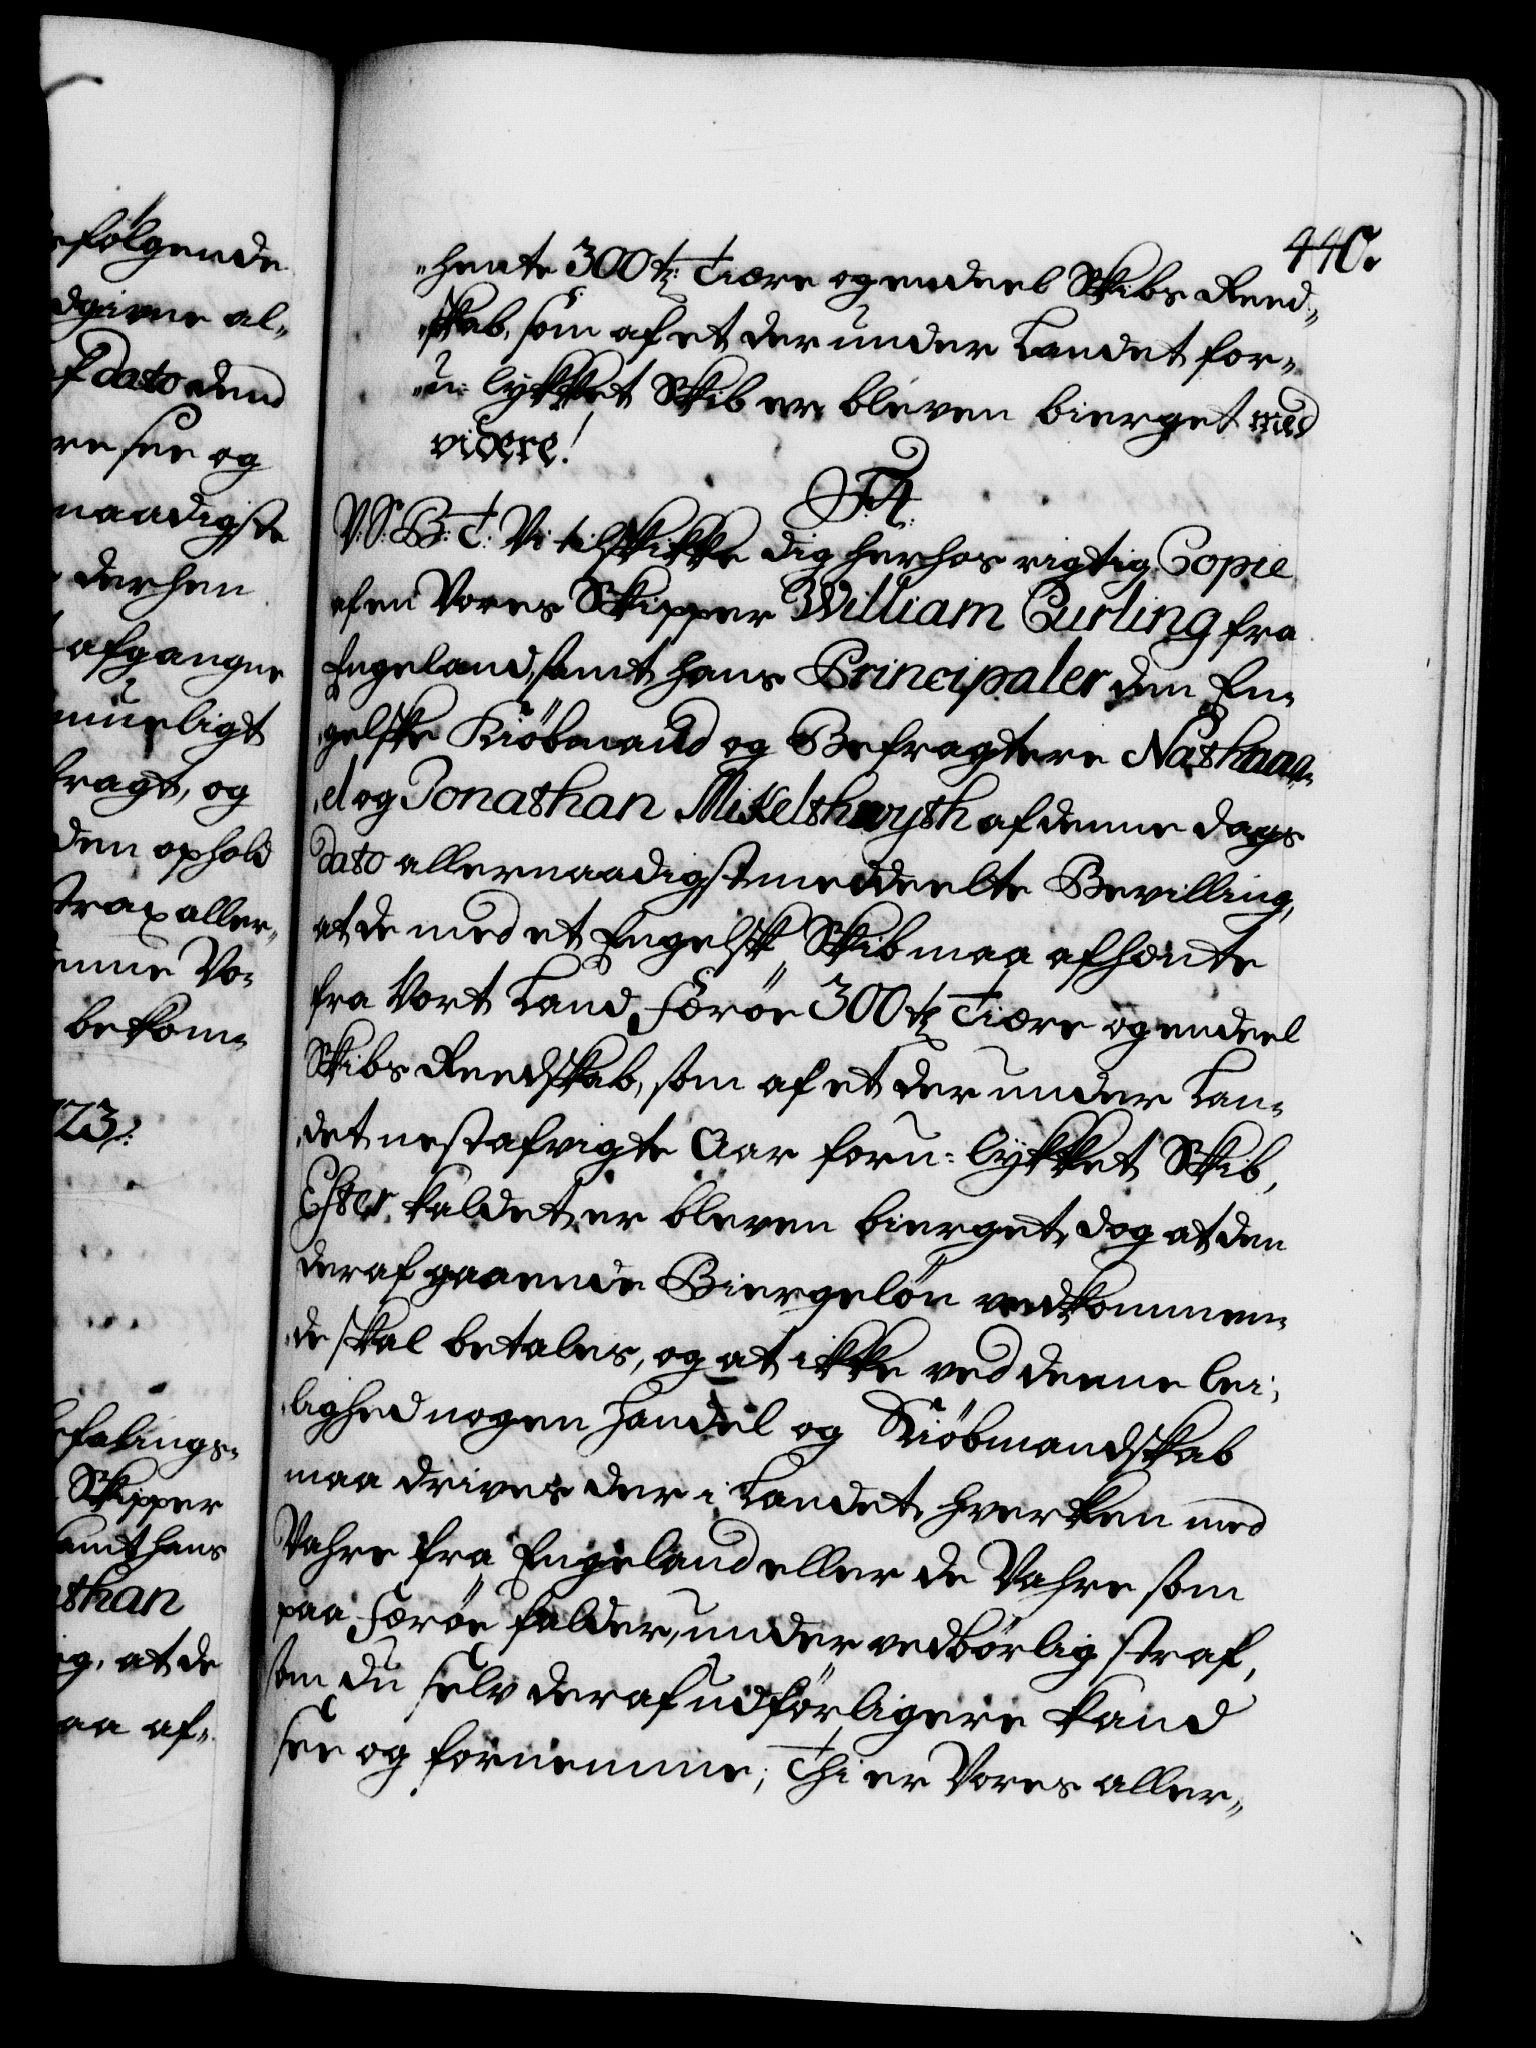 efölgende
dgivne al„
dato dend
re see og
naadigste
derhen
afgangne
mueligt
fragt, og
den ophold
strax aller„
enne Vo„
bekom„
723:
efalings„
Skipper
samt hans
than
ig, at de
aa af„
440.
„hente 300 tr: Tiære og endeel Skibs Reed„
„skab, som af et der under Landet for„
„u-lykket Skib er bleven bierget med
videre!
F: 4.
V: S: B: T: Vi tilskikke dig herhos rigtig Copie
af en Vores Skipper William Curling fra
Engeland, samt hans Principaler den En„
„gelske Kiöbmand og Befragtere Nathana„
„el og Jonathan Mikelthwyth af denne dags
dato allernaadigst meddeelte Bevilling,
at de med et Engelsk Skib maa afhente
fra Vort Land Færöe 300 tr: Tiære og endeel
Skibs Reedskab, som af et der under Lan„
„det nest afvigte Aar foru-lykket Skib,
Ester kaldet, er bleven bierget, dog at den
deraf gaaende Biergelön vedkommen„
„de skal betales, og at ikke ved denne lei„
„lighed nogen handel og Kiöbmandskab
maa drives der i Landet, hverken med
Vahre fra Engeland eller de Vahre som
paa Færöe falder, under vedbörlig straf,
som du selv deraf udförligere kand
see og fornemme; Thi er Vores aller„